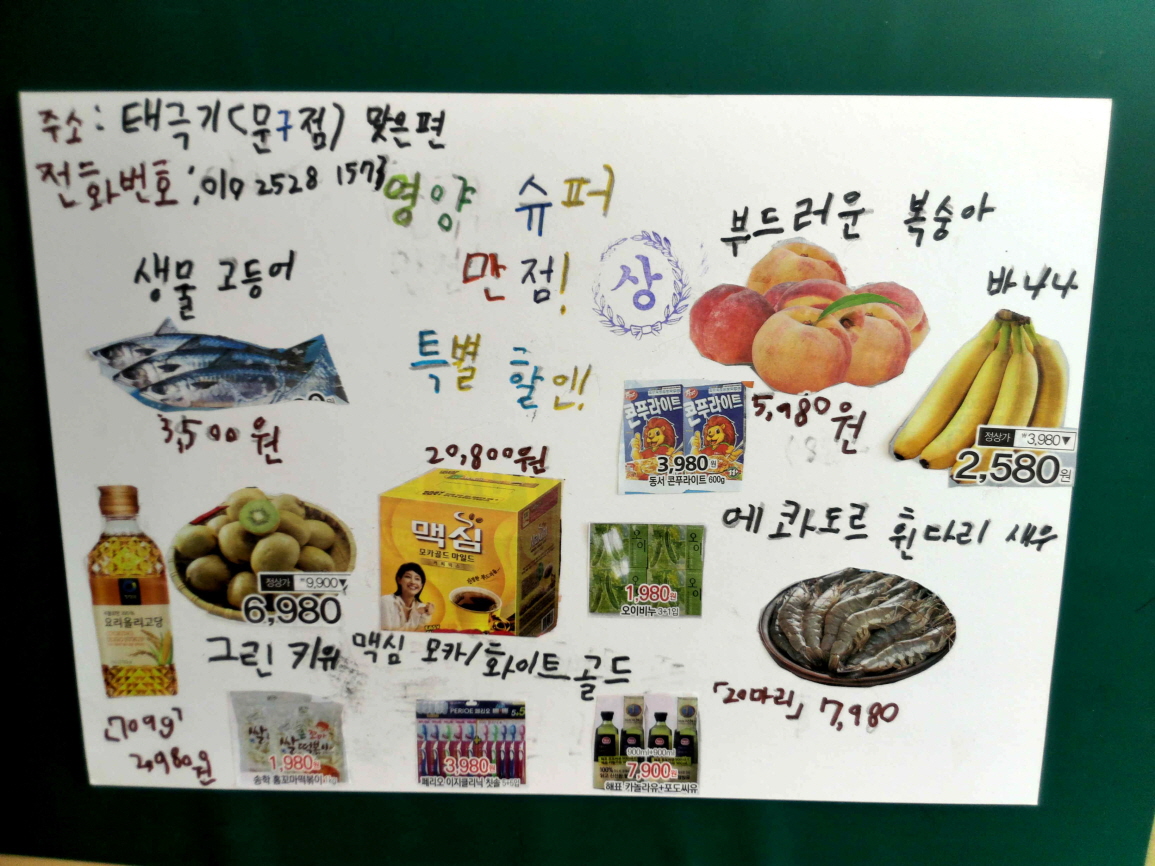 주소: 태극기(문구점) 맞은편
전화번호; 010 2528 1573
영양 슈퍼
만점!
상
특별 할인!
생물 고등어
3,500원
부드러운 복숭아
5,980원
바나나
정상가 ₩3,980▼
2,580원
콘푸라이트 콘푸라이트
3,980원
동서 콘푸라이트 600g
요리올리고당
「709g」
2,980원
정상가 ₩9,900▼
6,980
그린 키위
20,800원
맥심
모카골드 마일드
맥심 모카/화이트 골드
1,980원
오이비누 3+1입
에콰도르 흰다리 새우
「20마리」 7,980
1,980원
송학 홈꼬마떡볶이
PERIOE 페리오
3,980원
페리오 이지클리닉 칫솔
900ml+900ml
7,900원
해표 카놀라유+포도씨유